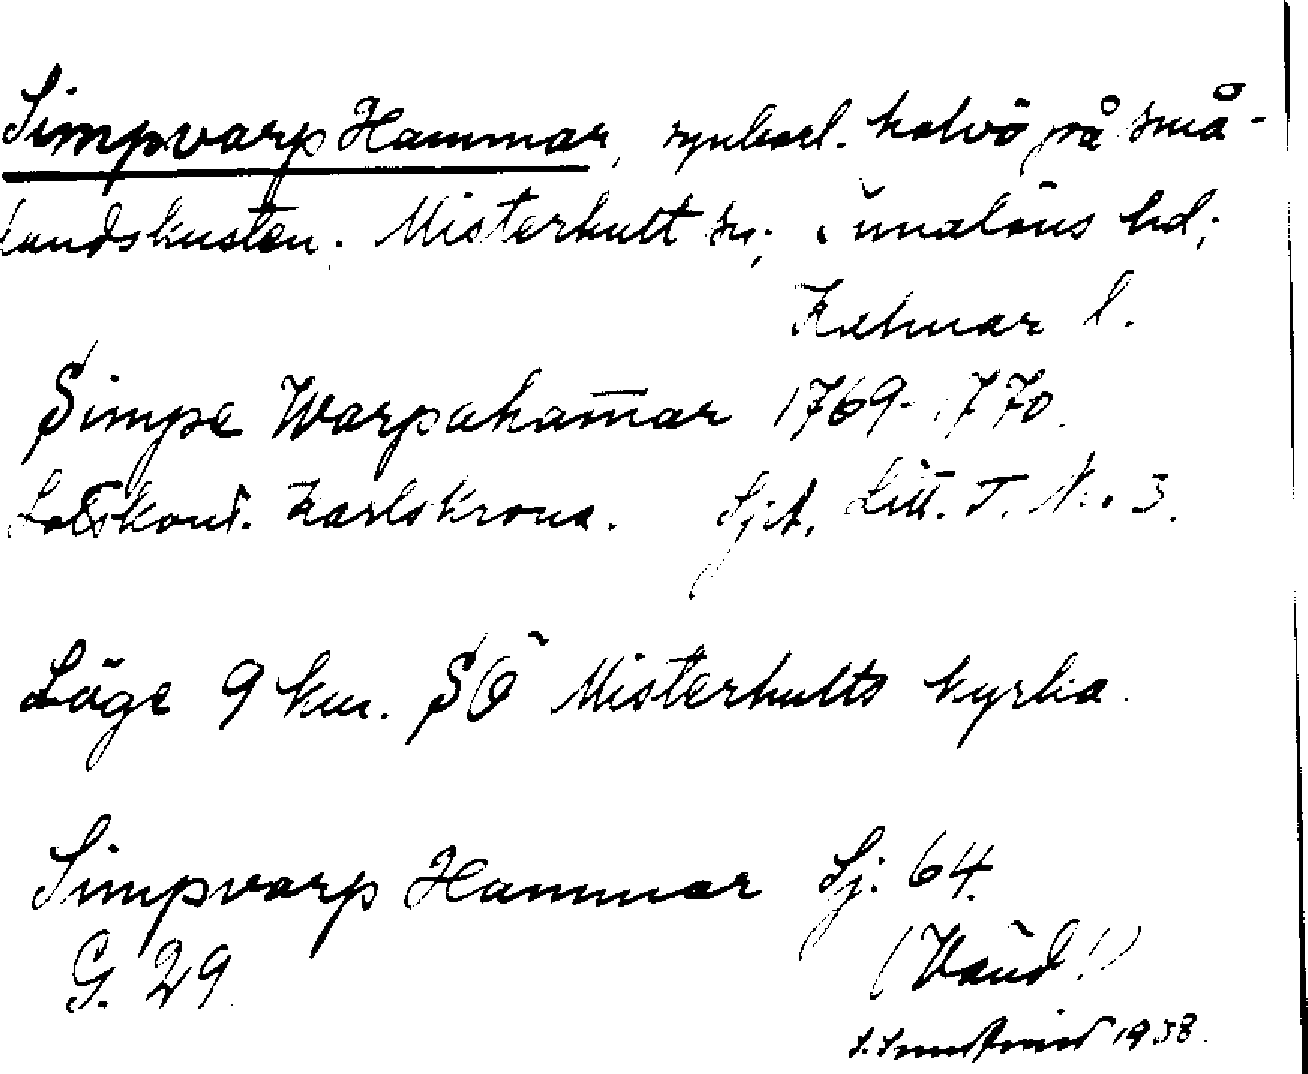 Simpvarp Hammar, halvö på Små-
landskusten. Misterhult sn; hd;
Kalmar l.
Simpe Warpahamar 1769-1770.
Lotskont. Karlskrona. Sjk. Litt. T. No 3.
Läge 9 km. SÖ Misterhults kyrka.
Simpvarp Hammar Sj. 64.
G. 29.
(Vänd!)
1938.